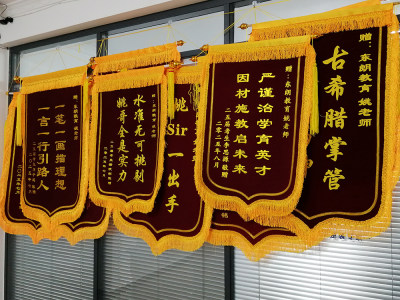 赠：东朗教育
一笔一画描理想
一言一行引路人
水准无可挑剔
姚哥全是实力
姚
Sir
一出手
赠：东朗教育 姚老师
严谨治学育英才
因材施教启未来
二〇二五年八月
赠：东朗教育 姚老师
古希腊掌管